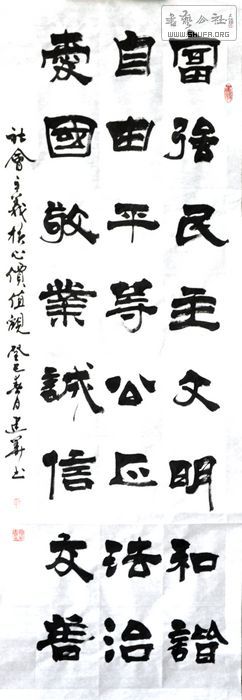 書藝公社
www.SHUFA.ORG
富強民主文明和諧
自由平等公正法治
愛國敬業誠信友善
社會主義核心價值觀 癸巳春月建華书